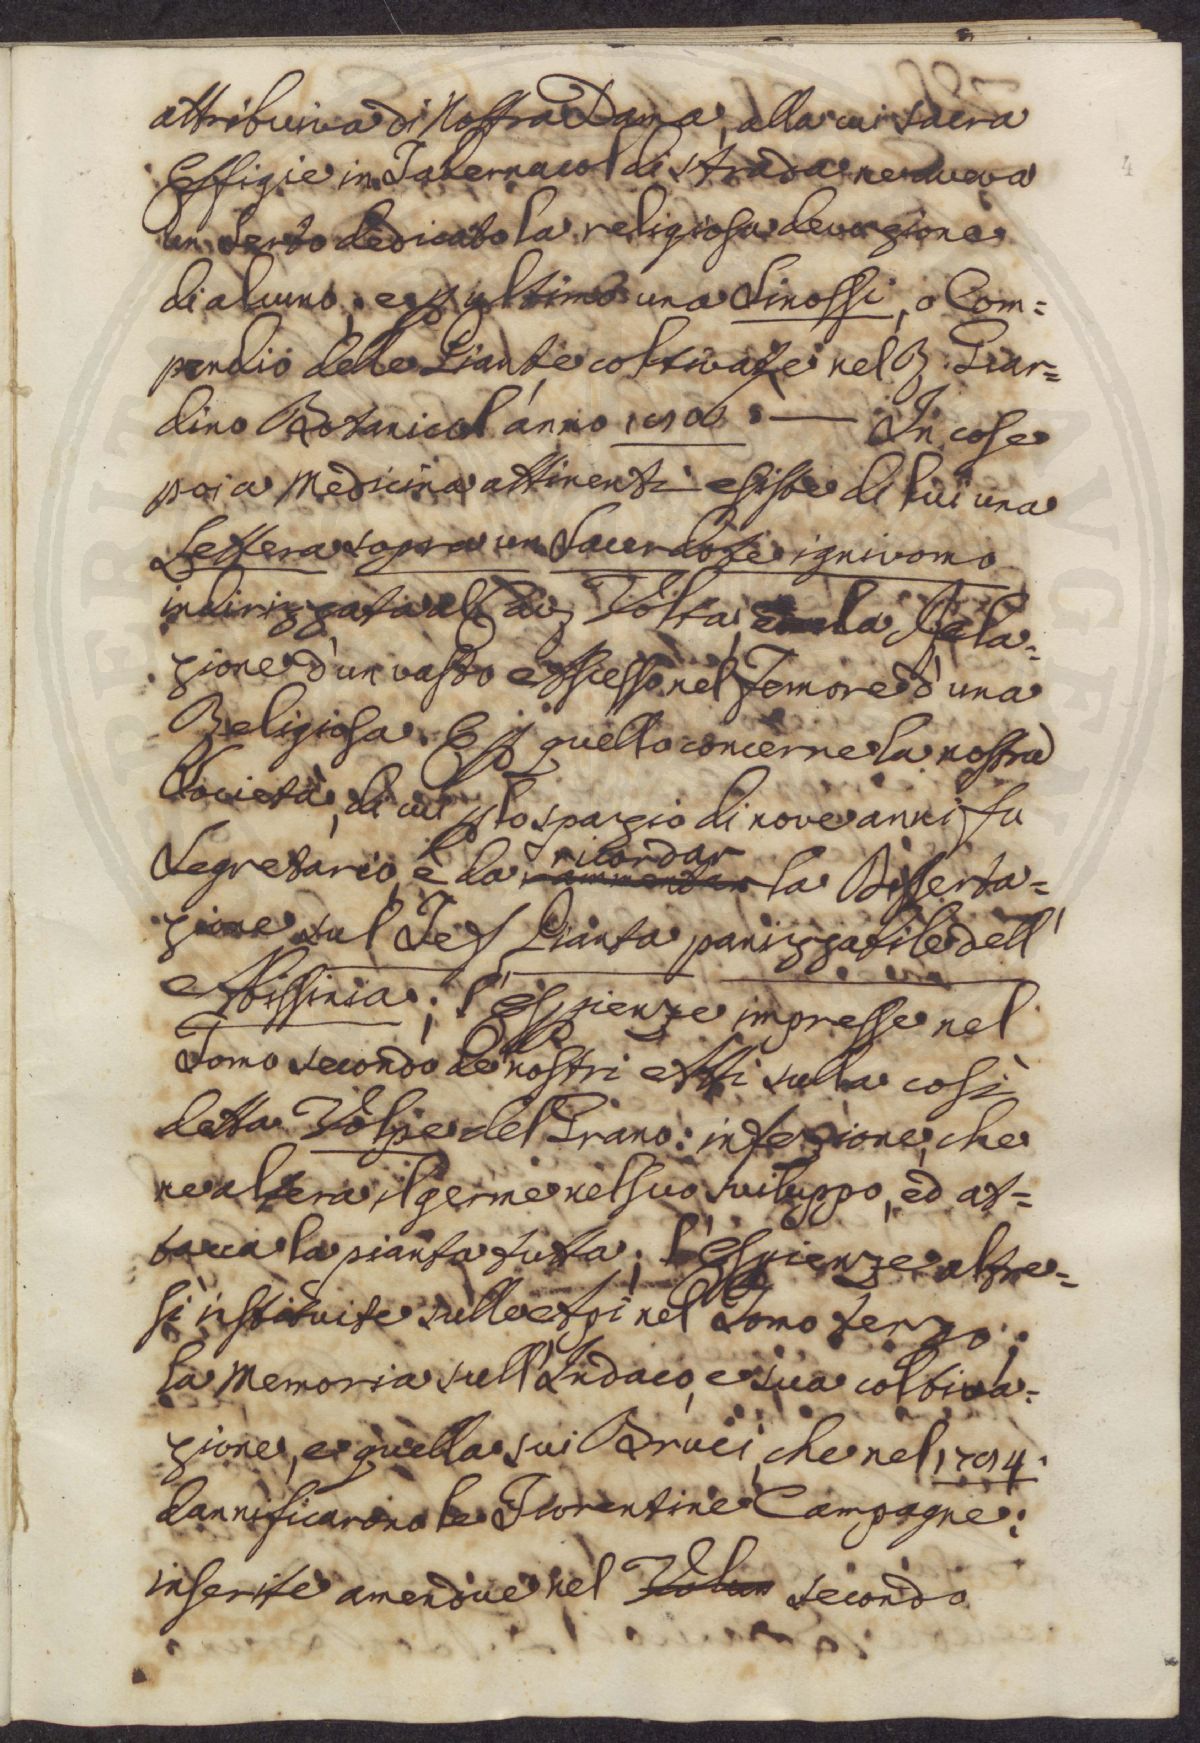 attribuiva di Nostra Dama, alla cui sacra
Effigie in Tabernacol di strada ne aveva
un serto dedicato la religiosa devozione
di alcuno; e p ultimo una Sinossi, o Com=
pendio delle Piante coltivate nel R. Giar=
dino Botanico l'anno : — In cose
poi a Medicina attinenti esiste di lui una
Lettera sopra un Sacerdote ignivomo
indirizzata al Volta, e la Rela=
zione d'un vasto Ascesso nel Femore d'una
Religiosa. E p quello concerne la nostra
Società, di cui p lo spazio di nove anni fu
Segretario, è da rammentar ricordar la Disserta=
zione sul Tef Pianta panizzabile dell'
Abissinia; l'Esperienze impresse nel
Tomo secondo de' nostri Atti sulla così
detta Volpe del Grano: infezione, che
ne altera il germe nel suo sviluppo, ed at=
tacca la pianta tutta; l'Esperienze altre=
sì istituite sulle Api nel Tomo terzo;
la Memoria sull'Indaco, e sua coltiva=
zione, e quella sui Bruci, che nel 1794
dannificarono le Fiorentine Campagne;
inserite amendue nel Volum secondo
4
PERITA AVGEN